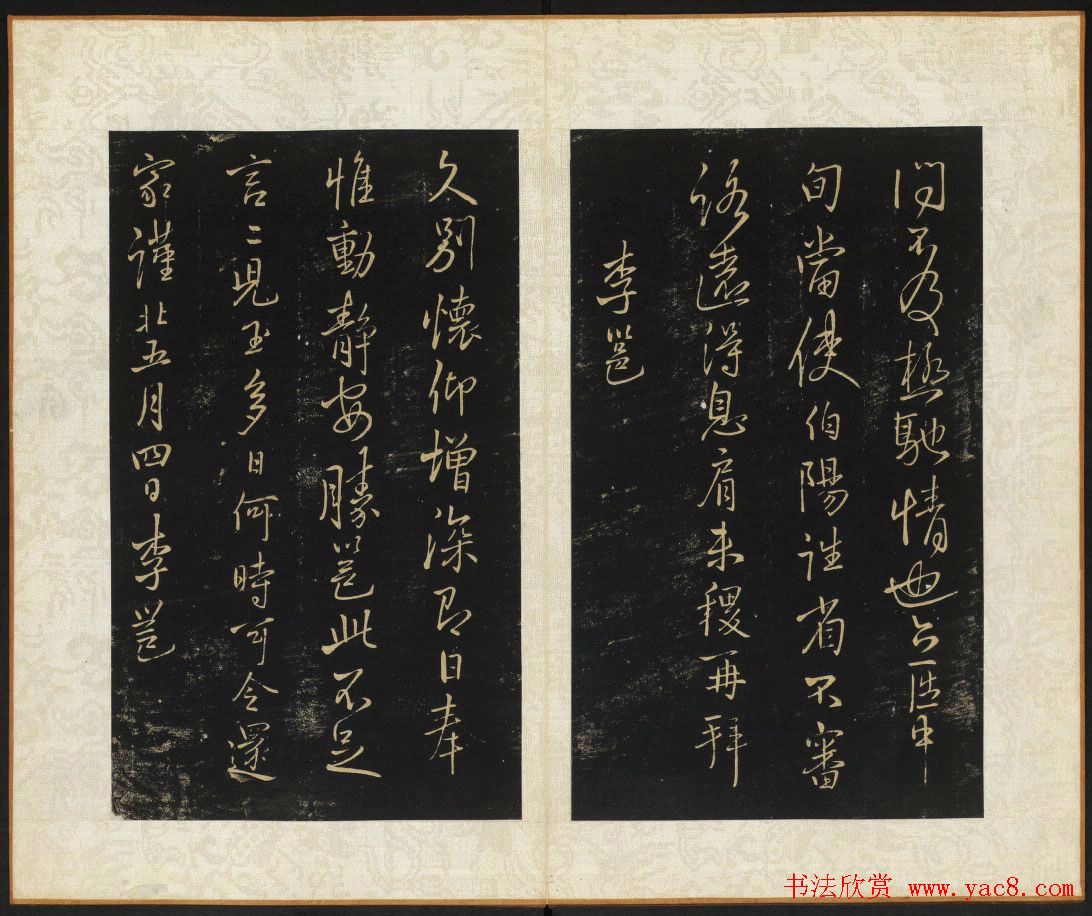 問不及極馳情也
旬當使伯陽往省不審
路遠得息肩未稷再拜
李邕
久別懷仰增深即日奉
惟動靜安勝邕此不足
言言兒至多日何時可令還
家謹此五月四日李邕
书法欣赏 www.yac8.com